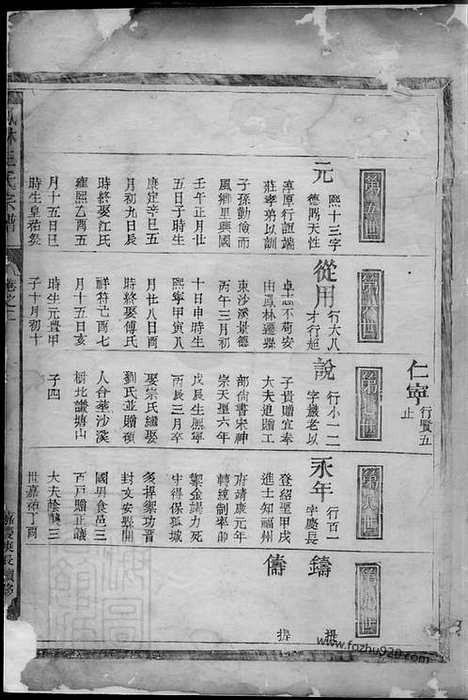 第五世
元
熙十三字
德隅天性
淳厚行誼端
莊孝弟以訓
子孫勤儉而
風鄉里與國
壬午正月廿
五日子時生
康定辛巳五
月初九日辰
時終娶江氏
雍熙乙酉五
月十五日巳
時生皇祐癸
第六世
從用
行大八
才行旭
卓 不苟安
由鳳林遷縣
東沙溪景德
丙午三月初
十日申時生
熙寧甲寅八
月廿八日酉
時終娶傅氏
祥符己酉七
月十五日亥
時生元豐甲
子十月初十
仁寧
行賢五
止
第七世
說
行小一二
字巖老以
子貴贈宜奉
大夫追贈工
部尚書宋神
宗天聖六年
戊辰生熙寧
丙辰三月卒
娶宗氏繼娶
劉氏並贈碩
人合葬沙溪
楊北議塘山
子四
第八世
永年
行百一
字慶長
登紹聖甲戌
進士知福州
府靖康元年
轉統制率師
禦金 力死
守得保孤城
提禦功晋
封文安縣開
國男食邑三
百戶贈正議
大夫 三
世嘉祐丁酉
第九世
鑄
提
儔
提
林王氏宗譜
卷之二
www.fozhu920.com